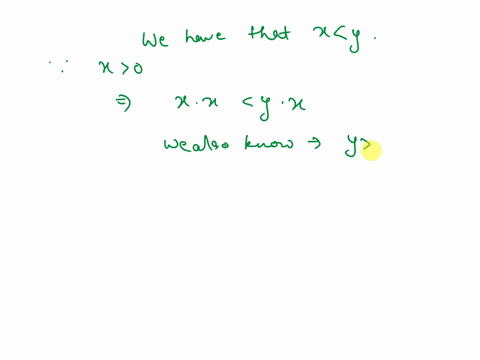 We have that x<y.
∵ x>0
⇒ x.x <y.x
we also know → y>